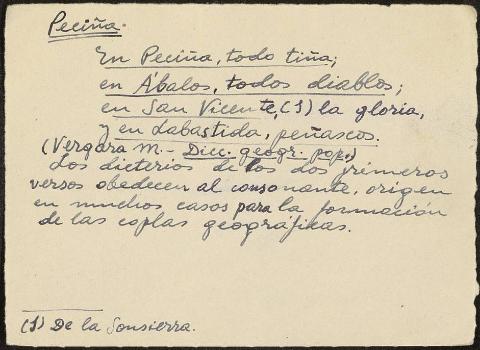 Peciña.
En Peciña, todo tiña;
en Ábalos, todos diablos;
en San Vicente, (1) la gloria,
y en Labastida, peñascos.
(Vergara M. - Dicc. geogr. pop.)
Los dicterios de los dos primeros
versos obedecen al consonante, origen
en muchos casos para la formación
de las coplas geográficas.
(1) De la Sonsierra.